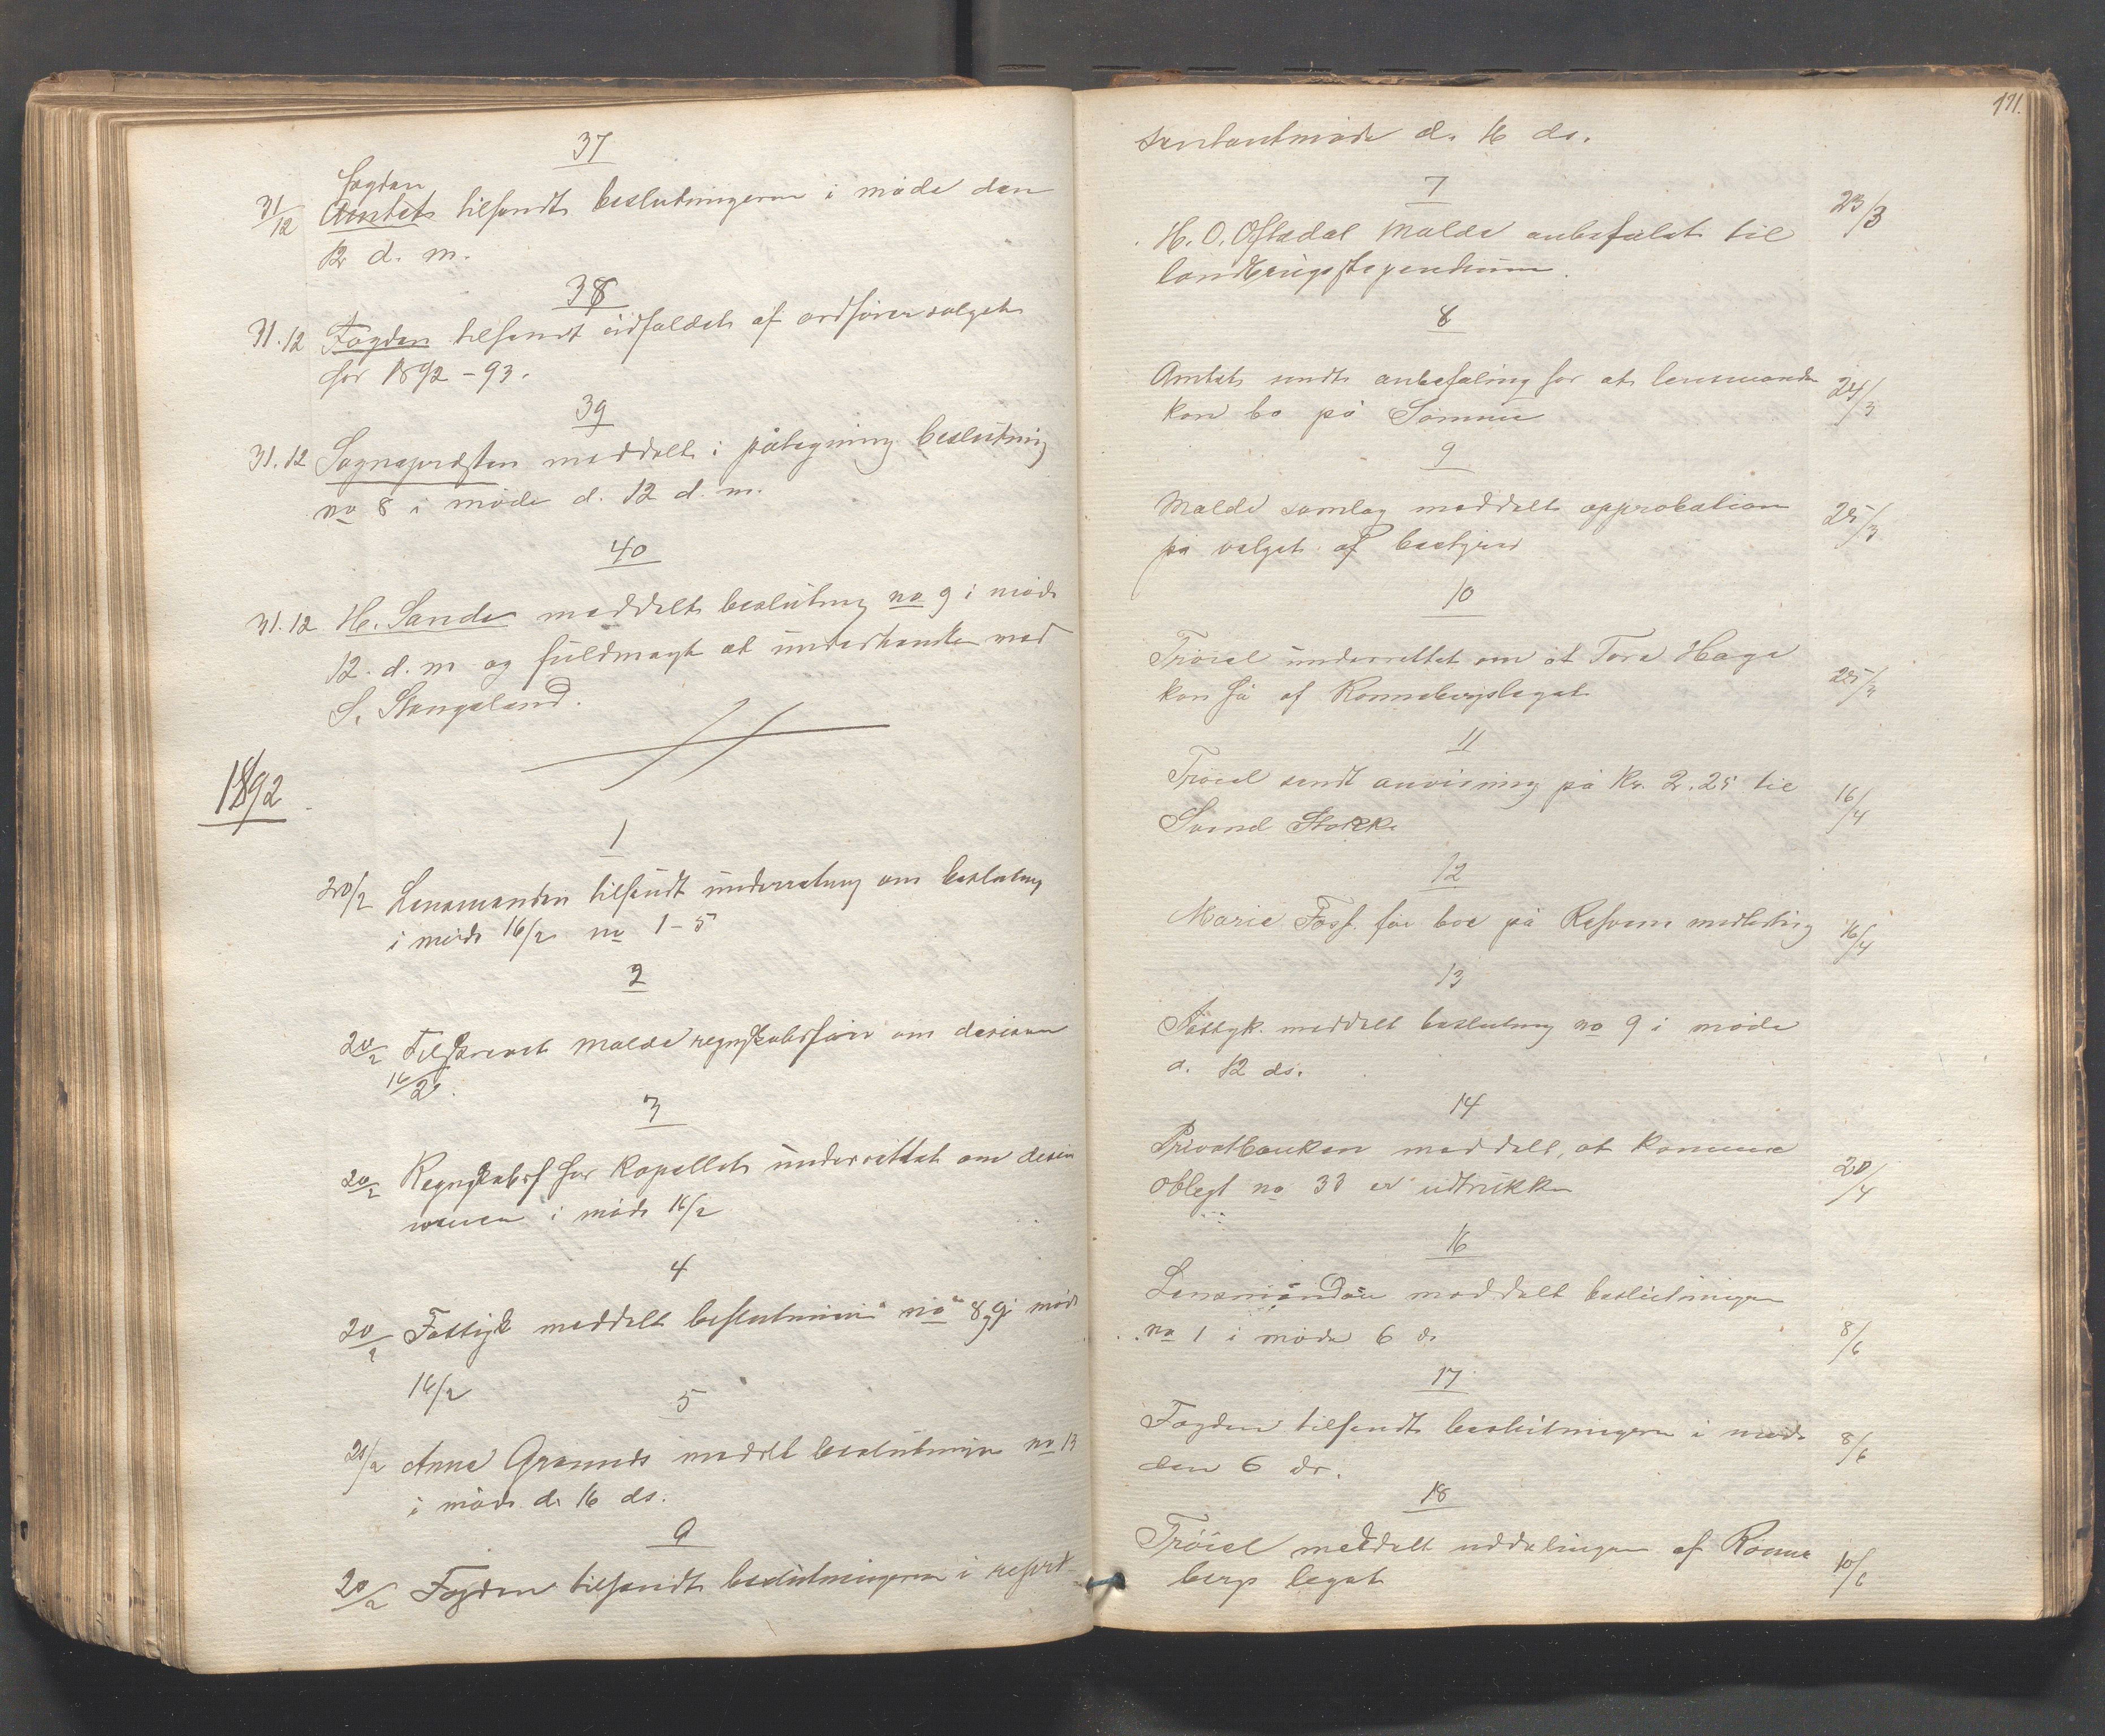 37
Fogden
31/12 Amtet tilsendt beslutningerne i møde den
12 d. m.
38
31.12 Fogden tilsendt udfaldet af ordførervalget
for 1892-93.
39
31.12 Sognepræsten meddelt i påtegning beslutning
no 8 i møde d. 12 d. m.
40
31.12 H. Sande meddelt beslutning no 9 i møde
12. d. m og fuldmagt at underhandle med
S. Stangeland.
1892
1
20/2 Lensmanden tilsendt underretning om beslutning
i møde 16/2 no 1-5
2
20/2 Tilskrevet Malde regnskabsfører om desision
16/2.
3
20/2 Regnskabsf for kapellet underrettet om desisi
onen i møde 16/2
4
20/2 Fattigk meddelt beslutninger no 8, 9 i møde
16/2
5
20/2 Anna Grannes meddelt beslutningen no 13
i møde d. 16 ds.
6
20/2 Fogden tilsendt beslutningerne i repræ-
171.
sentantmøde d. 16 ds.
7
H. O. Oftedal Malde anbefalet til 23/3
landbrugsstipendium.
8
Amtet sendt anbefaling for at lensmanden 24/3
kan bo på Sømme
9
Malde samlag meddelt approbation 25/3
på valget af bestyrer
10
Trøiel underrettet om at Tore Haga
kan få af Ronnebergslegat 25/3
11
Trøiel sendt anvisning på Kr. 2.25 til 16/4
Svend Stokke
12
Marie Foss. får boe på Refsnes meddeling 16/4
13
Fattigk. meddelt beslutning no 9 i møde
d. 12 ds.
14
Privatbanken meddelt, at komune
oblegt no 33 er udtrukken 20/4
16
Lensmanden meddelt beslutningen
no 1 i møde 6 ds 8/6
17
Fogden tilsendt beslutningerne i møde 8/6
den 6 ds.
18
Trøiel meddelt uddelingen af Ronne 10/6
bergs legat